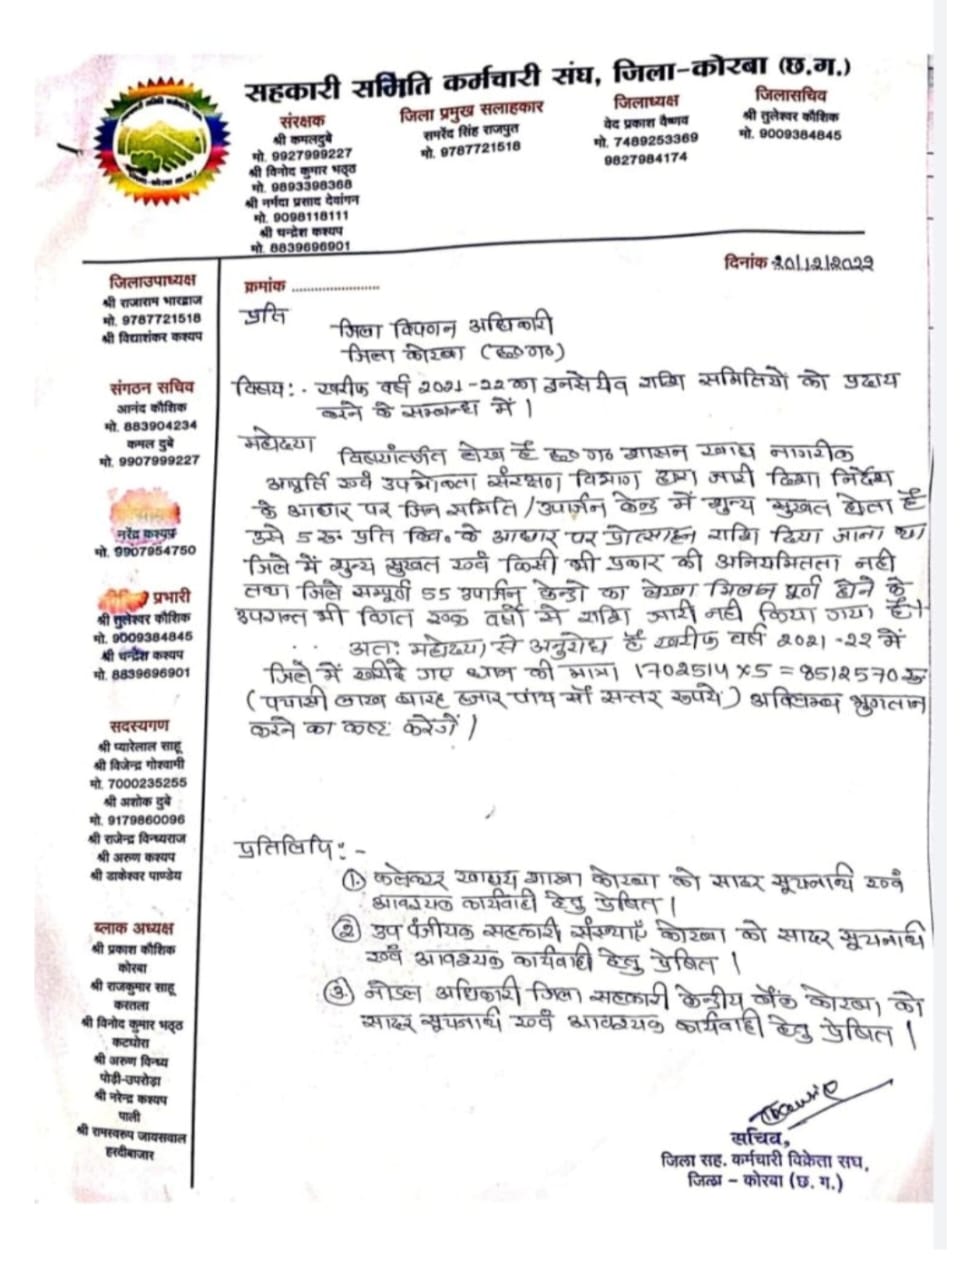 सहकारी समिति कर्मचारी संघ, जिला-कोरबा (छ.ग.)
संरक्षक
श्री कमलदुबे
मो. 9927999227
श्री विनोद कुमार भट्ट
मो. 9893398368
श्री नर्मदा प्रसाद देवांगन
मो. 9098118111
श्री चन्द्रेश कश्यप
मो. 8839696901
जिला प्रमुख सलाहकार
समरेंद सिंह राजपुत
मो. 9787721518
जिलाध्यक्ष
वेद प्रकाश वैष्णव
मो. 7489253369
9827984174
जिलासचिव
श्री तुलेश्वर कौशिक
मो. 9009384845
जिलाउपाध्यक्ष
श्री राजाराम भारद्वाज
मो. 9787721518
श्री विद्याशंकर कश्यप
संगठन सचिव
आनंद कौशिक
मो. 883904234
कमल दुबे
मो. 9907999227
नरेंद्र कश्यप
मो. 9907954750
प्रभारी
श्री तुलेश्वर कौशिक
मो. 9009384845
श्री चन्द्रेश कश्यप
मो. 8839696901
सदस्यगण
श्री प्यारेलाल साहू
श्री विजेन्द्र गोस्वामी
मो. 7000235255
श्री अशोक दुबे
मो. 9179860096
श्री राजेन्द्र विन्ध्यराज
श्री अरुण कश्यप
श्री डाकेश्वर पाण्डेय
ब्लाक अध्यक्ष
श्री प्रकाश कौशिक
कोरबा
श्री राजकुमार साहू
करतला
श्री विनोद कुमार भट्ट
कटघोरा
श्री अरुण विन्ध्य
पोड़ी-उपरोड़ा
श्री नरेन्द्र कश्यप
पाली
श्री रामस्वरुप जायसवाल
हरदीबाजार
दिनांक 20/12/2022
क्रमांक ........................
प्रति
जिला विपणन अधिकारी
जिला कोरबा (छ०ग०)
विषय:- खरीफ वर्ष 2021-22 का राशि समितियो को प्रदाय
करने के सम्बन्ध में।
महोदया
विषयांतर्गत लेख है छ०ग० शासन खाद्य नागरीक
आपूर्ति एवं उपभोक्ता संरक्षण विभाग द्वारा जारी दिशा निर्देश
के आधार पर जिन समिति/उपार्जन केन्द्र में शुन्य सुखत होता है
उसे 5 रू. प्रति क्वि. के आधार पर प्रोत्साहन राशि दिया जाना था
जिले में शुन्य सुखत एवं किसी भी प्रकार की अनियमितता नही
तथा जिले सम्पूर्ण 55 उपार्जन केन्द्रो का लेखा मिलान पूर्ण होने के
उपरान्त भी विगत एक वर्षो से राशि जारी नही किया गया है।
अतः महोदया से अनुरोध है खरीफ वर्ष 2021-22 में
जिले में खरीदे गए धान की मात्रा 1702514 x 5 = 8512570 रू
(पचासी लाख बारह हजार पांच सौ सत्तर रूपये) अविलम्ब भुगतान
करने का कष्ट करेंगें।
प्रतिलिपि:-
① कलेक्टर खाद्य शाखा कोरबा को सादर सूचनार्थ एवं
आवश्यक कार्यवाही हेतु प्रेषित।
② उप पंजीयक सहकारी संस्थाएँ कोरबा को सादर सूचनार्थ
एवं आवश्यक कार्यवाही हेतु प्रेषित।
③ नोडल अधिकारी जिला सहकारी केन्द्रीय बैंक कोरबा को
सादर सूचनार्थ एवं आवश्यक कार्यवाही हेतु प्रेषित।
सचिव,
जिला सह. कर्मचारी विक्रेता संघ,
जिला - कोरबा (छ. ग.)